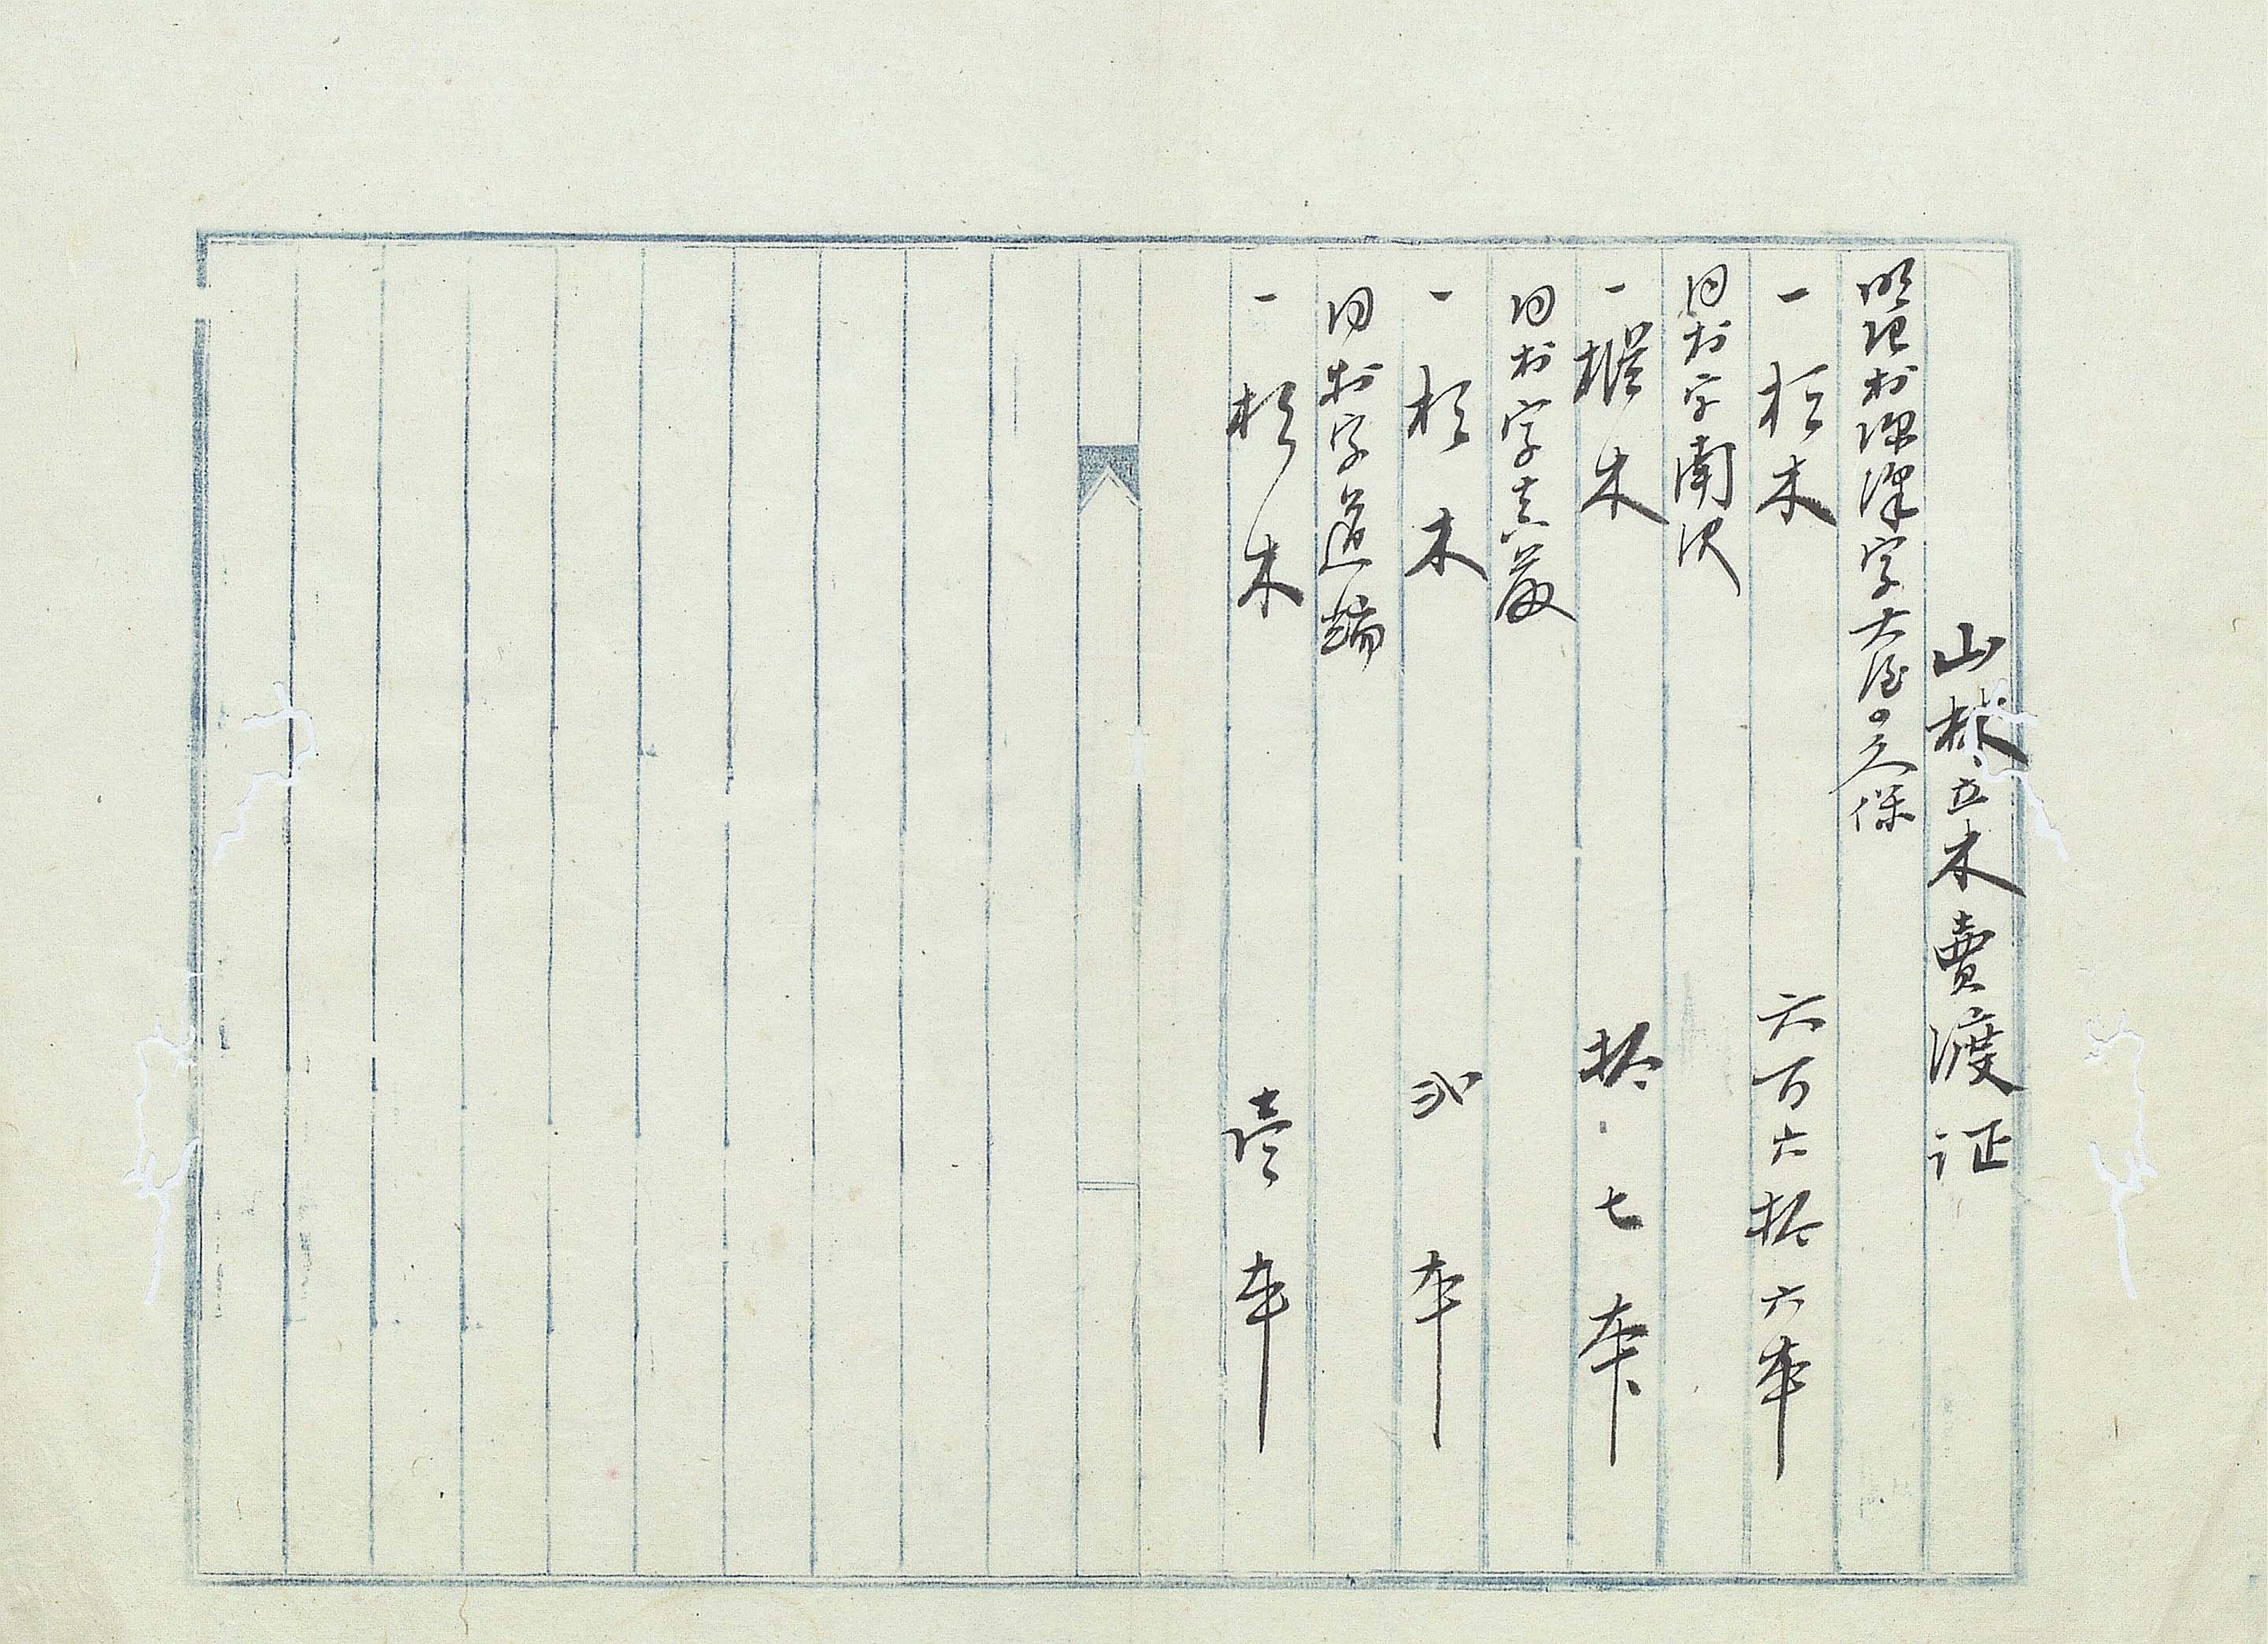 山林立木賣渡证
村深澤字大久保
一 杉木 六百六拾六本
同村字南沢
一 樅木 拾七本
同村字
一 杉木 弐本
同村字道端
一 杉木 壱本